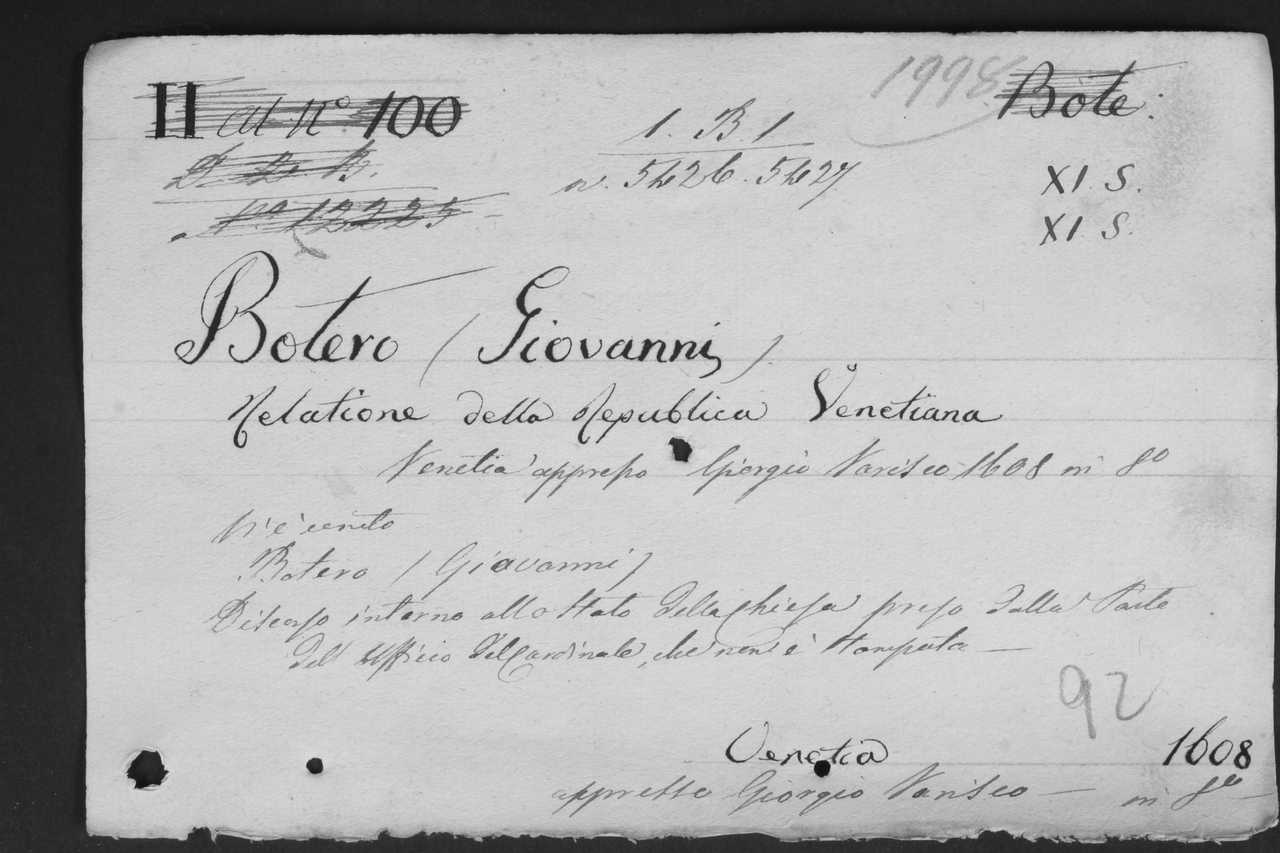 1998
II al No. 100
Bote:
1. B 1
D. L. B.
n. 5426. 5427
XI. S.
No. 12225
XI. S.
Botero (Giovanni)
Relatione della Republica Venetiana
Venetia appresso Giorgio Varisco 1608 in 8o
V'è unito
Botero (Giovanni)
Discorso intorno allo Stato della Chiesa preso dalla Parte
dell' Ufficio del Cardinale, che non è stampata —
92
Venetia 1608
appresso Giorgio Varisco — in 8o